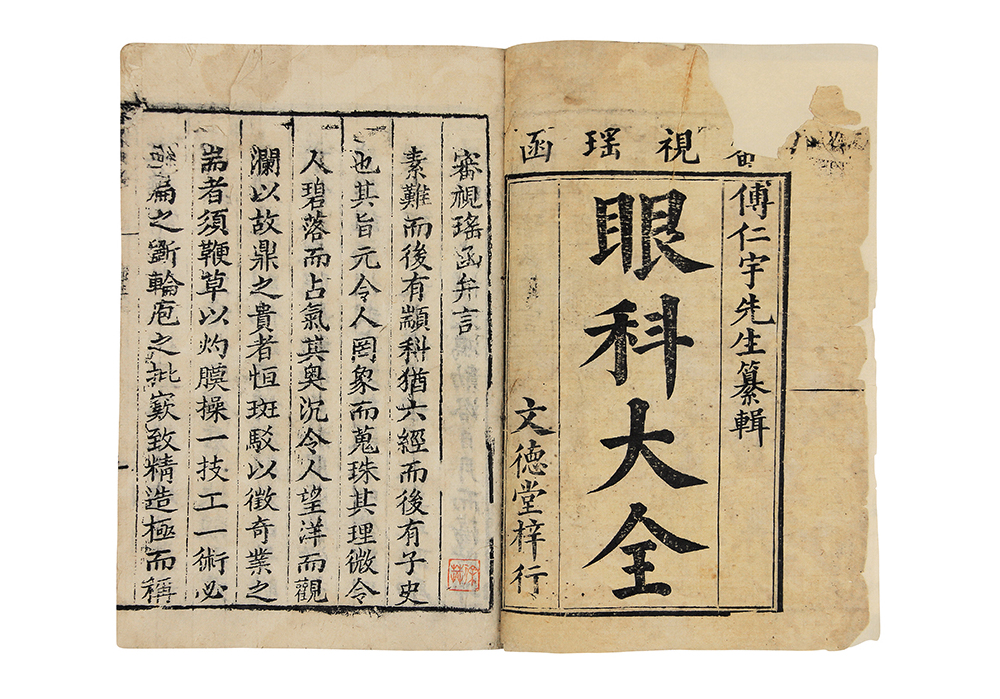 視瑶函
傅仁宇先生纂輯
眼科大全
文德堂梓行
審視瑤函弁言
素難而後有顓科猶六經而後有子史
也其旨元令人罔象而蒐珠其理微令
人碧落而占氣其奧沉令人望洋而觀
瀾以故鼎之貴者恒斑駁以徵奇業之
耑者須鞭草以灼膜操一技工一術必
扁之斵輪庖之批窾致精造極而稱